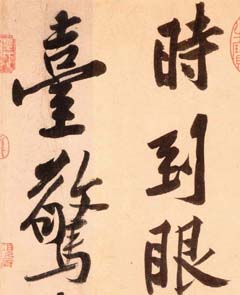 時到眼
臺驚